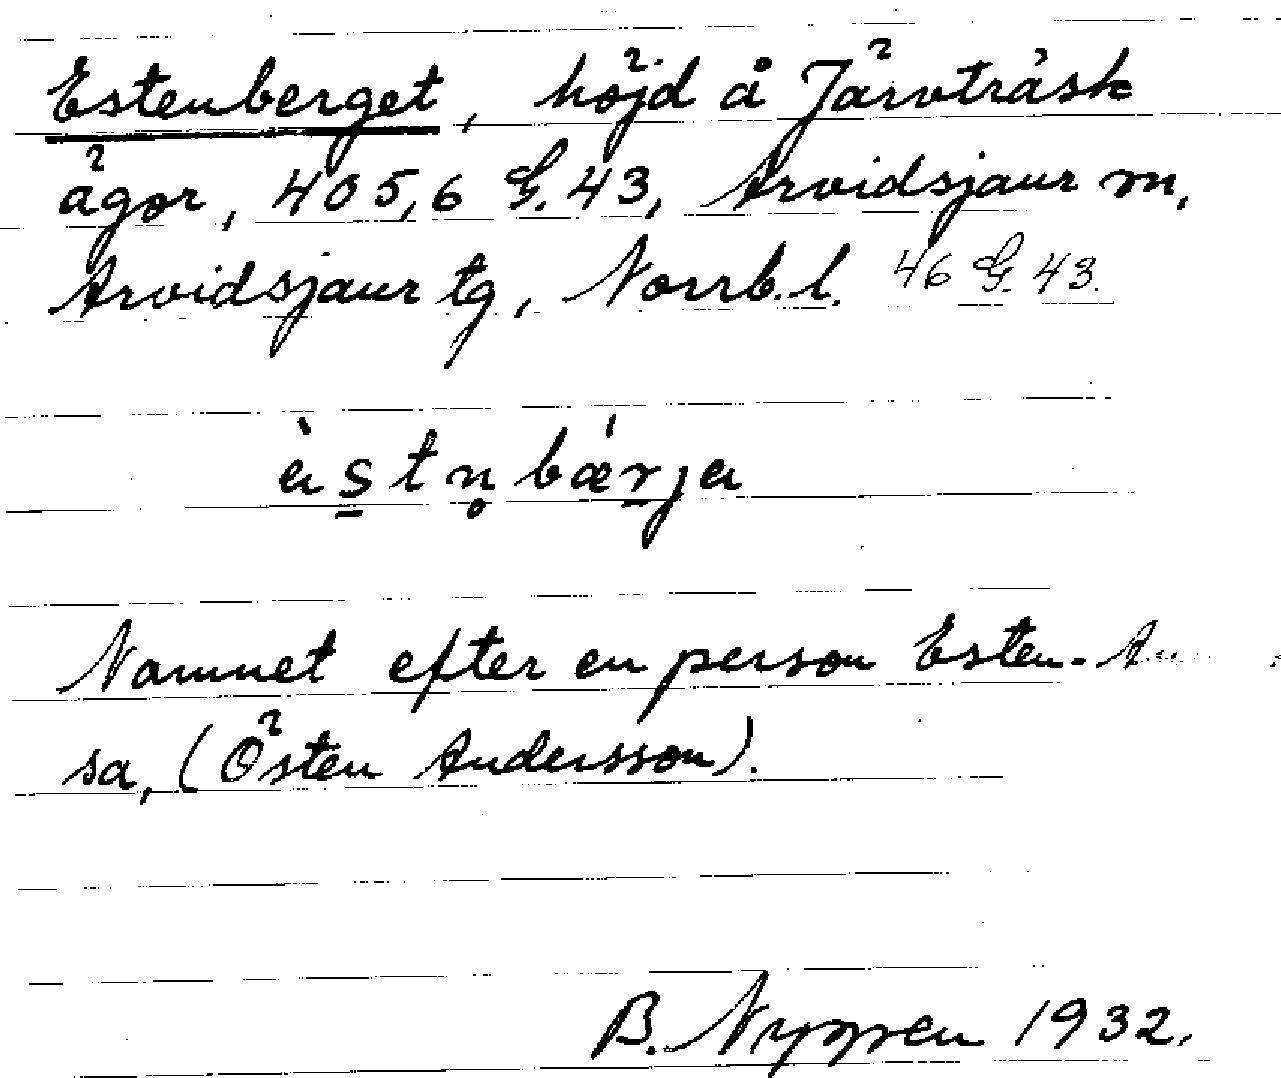 Estenberget, höjd å Järvträsk
ägor, 405,6 G. 43, Arvidsjaur sn,
Arvidsjaur tg, Norrb. l. 46 G. 43.
àstn̥bǽrja
Namnet efter en person Esten-
sa, (Östen Andersson).
B. Nygren 1932.